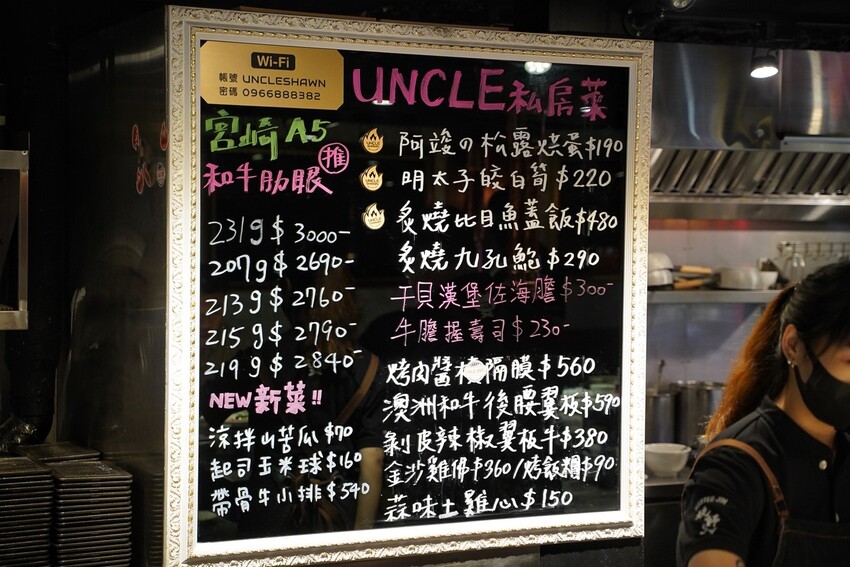 Wi-Fi
帳號 UNCLESHAWN
密碼 0966888382
UNCLE私房菜
宮崎A5
和牛肋眼 推
231g $ 3000-
207g $ 2690-
213g $ 2760-
215g $ 2790-
219g $ 2840-
NEW新菜!!
涼拌山苦瓜 $70
起司玉米球 $160
帶骨牛小排 $540
阿竣の松露烘蛋 $190
明太子皎白筍 $220
炙燒比目魚蓋飯 $480
炙燒九孔鮑 $290
干貝漢堡佐海膽 $300-
牛膽握壽司 $230-
烤肉醬 隔膜 $560
澳洲和牛後腰翼板 $590
剝皮辣椒翼板牛 $380
金沙雞佛 $360/烤飯糰 $90
蒜味土雞心 $150